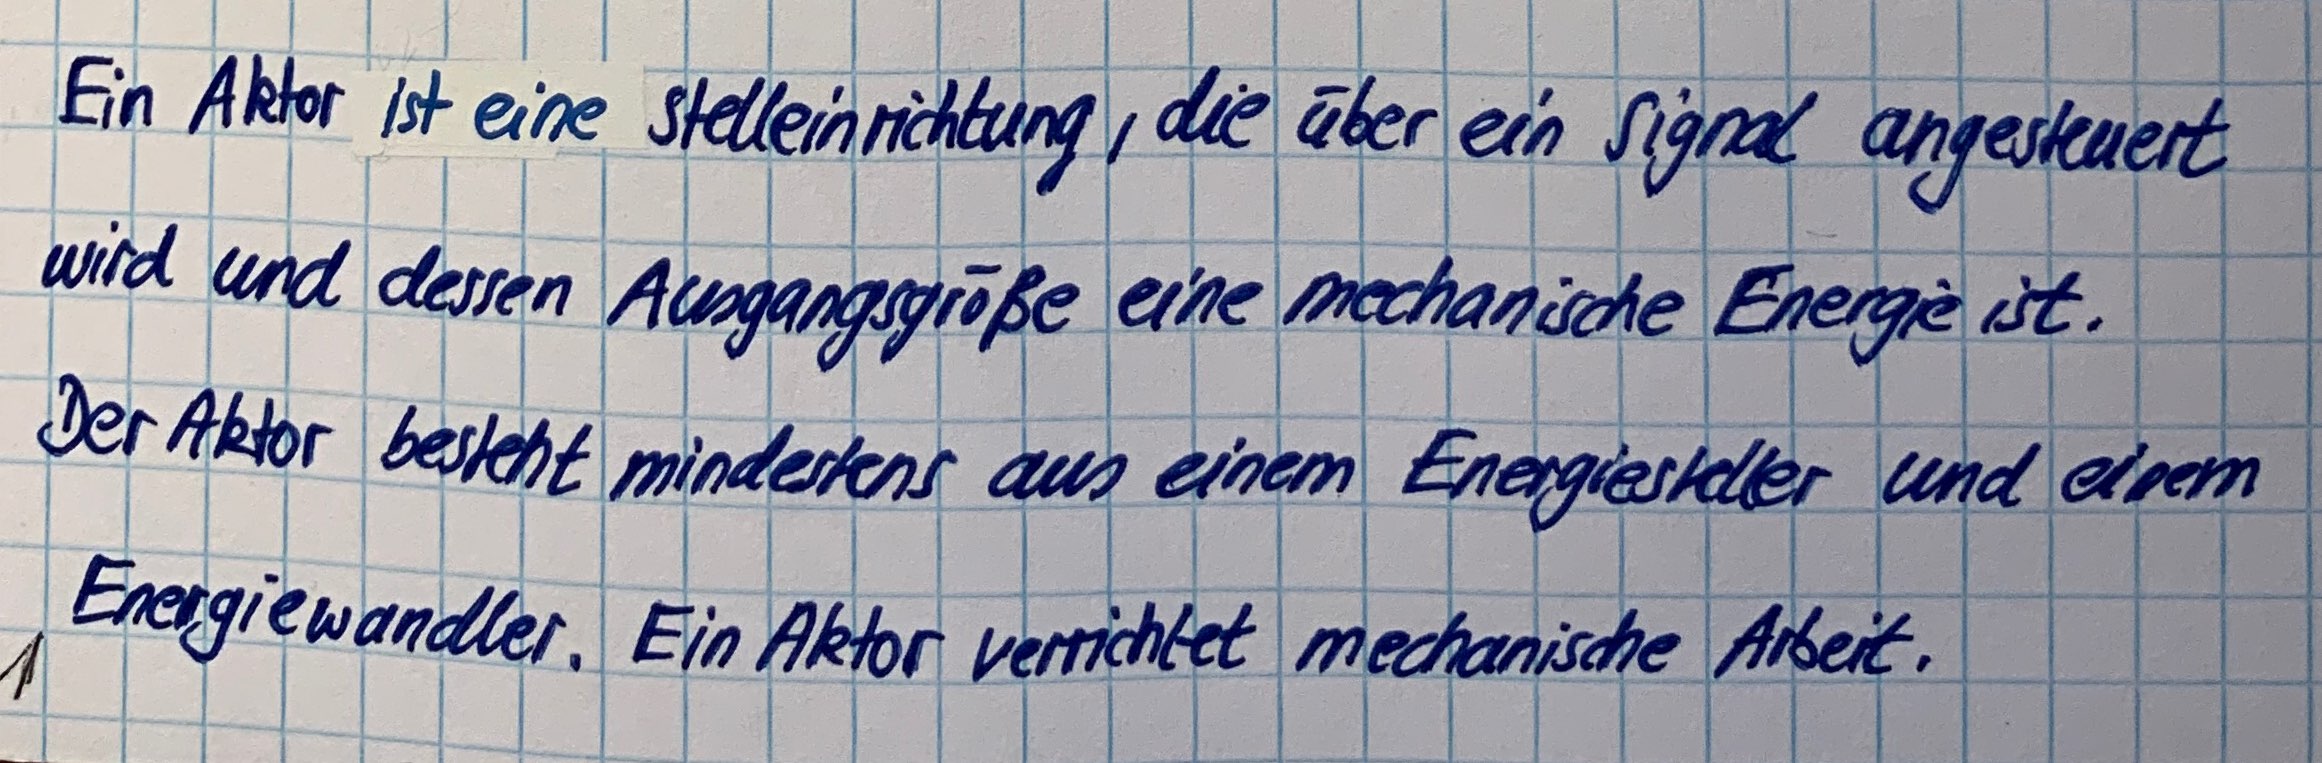 Ein Aktor ist eine Stelleinrichtung, die über ein Signal angesteuert
wird und dessen Ausgangsgröße eine mechanische Energie ist.
Der Aktor besteht mindestens aus einem Energiesteller und einem
Energiewandler. Ein Aktor verrichtet mechanische Arbeit.
1